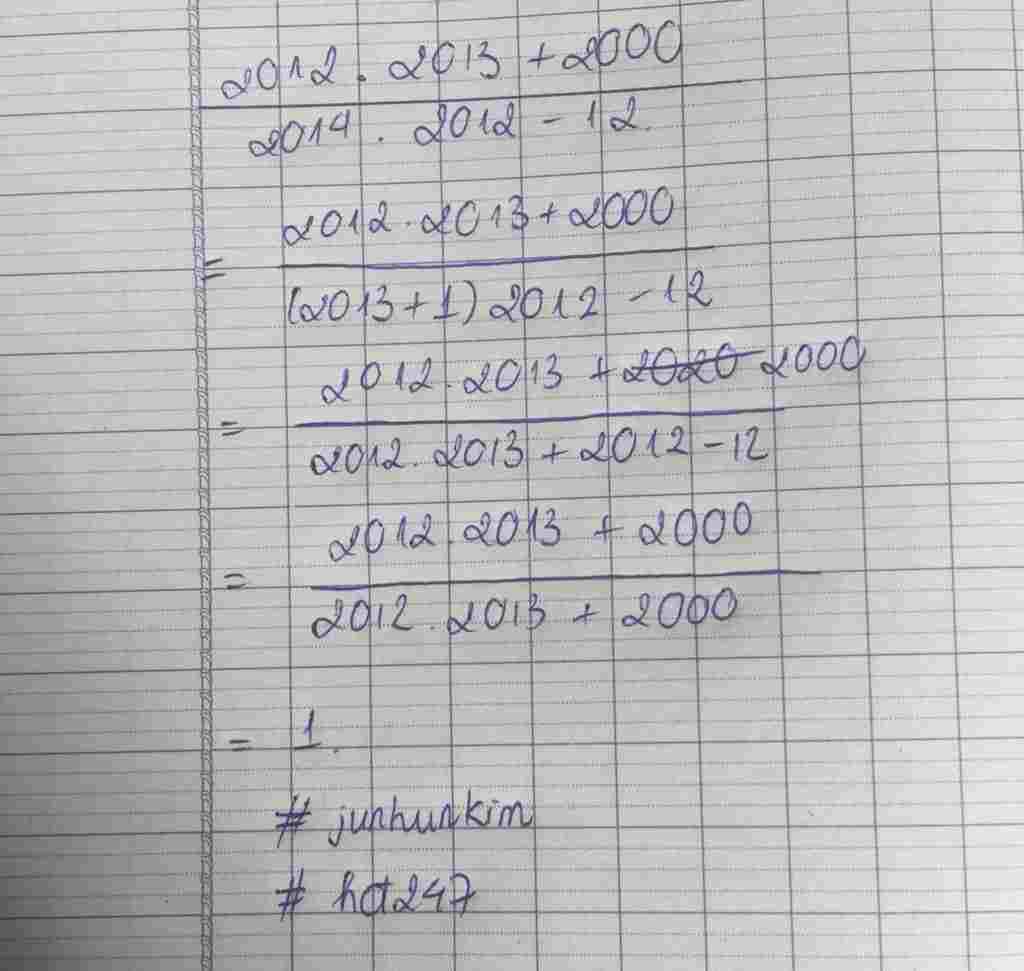 2012 . 2013 + 2000
2014 . 2012 - 12.
= 2012 . 2013 + 2000
(2013 + 1) 2012 - 12
= 2012 . 2013 + 2020 2000
2012 . 2013 + 2012 - 12
= 2012 . 2013 + 2000
2012 . 2013 + 2000
= 1.
# junhunkim
# hot247